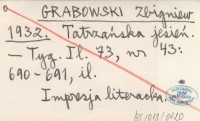 GRABOWSKI Zbigniew
1932. Tatrzańska jesień.
— Tyg. Il. 73, nr 43:
690-691, il.
Impresja literacka.